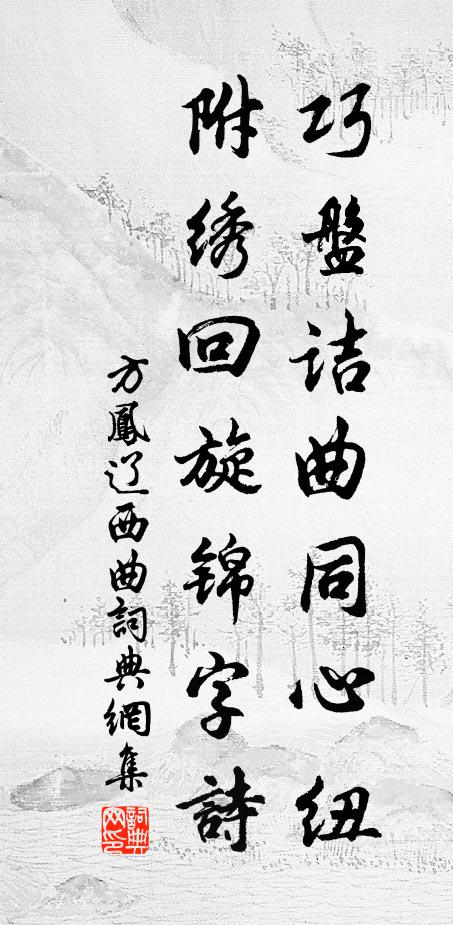 巧盤诘曲同心纽
附绣回旋锦字詩
方鳳辽西曲詞典網集
詞典
网印